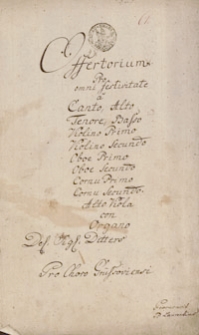 Offertorium
Pro
omni festivitate
a
Canto, Alto
Tenore, Basso
Violino Primo
Violino Secundo
Oboe Primo
Oboe Secundo
Cornu Primo
Cornu Secundo
Alto Viola
con
Organo
Del Sigl. Ditters
Pro Choro